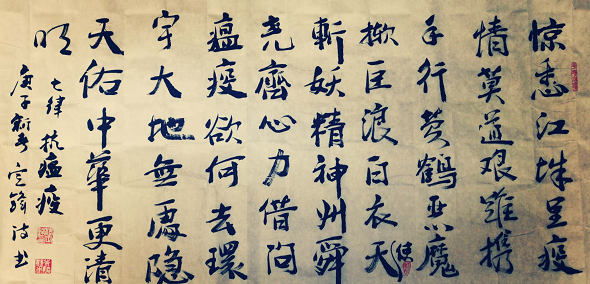 惊悉江城呈疫
情莫道艰難携
手行黄鹤恶魔
掀巨浪白衣天使
斬妖精神州舜
堯齊心力借问
瘟疫欲何去環
宇大地無處隐
天佑中華更清
明
七律 抗瘟疫
庚子新春